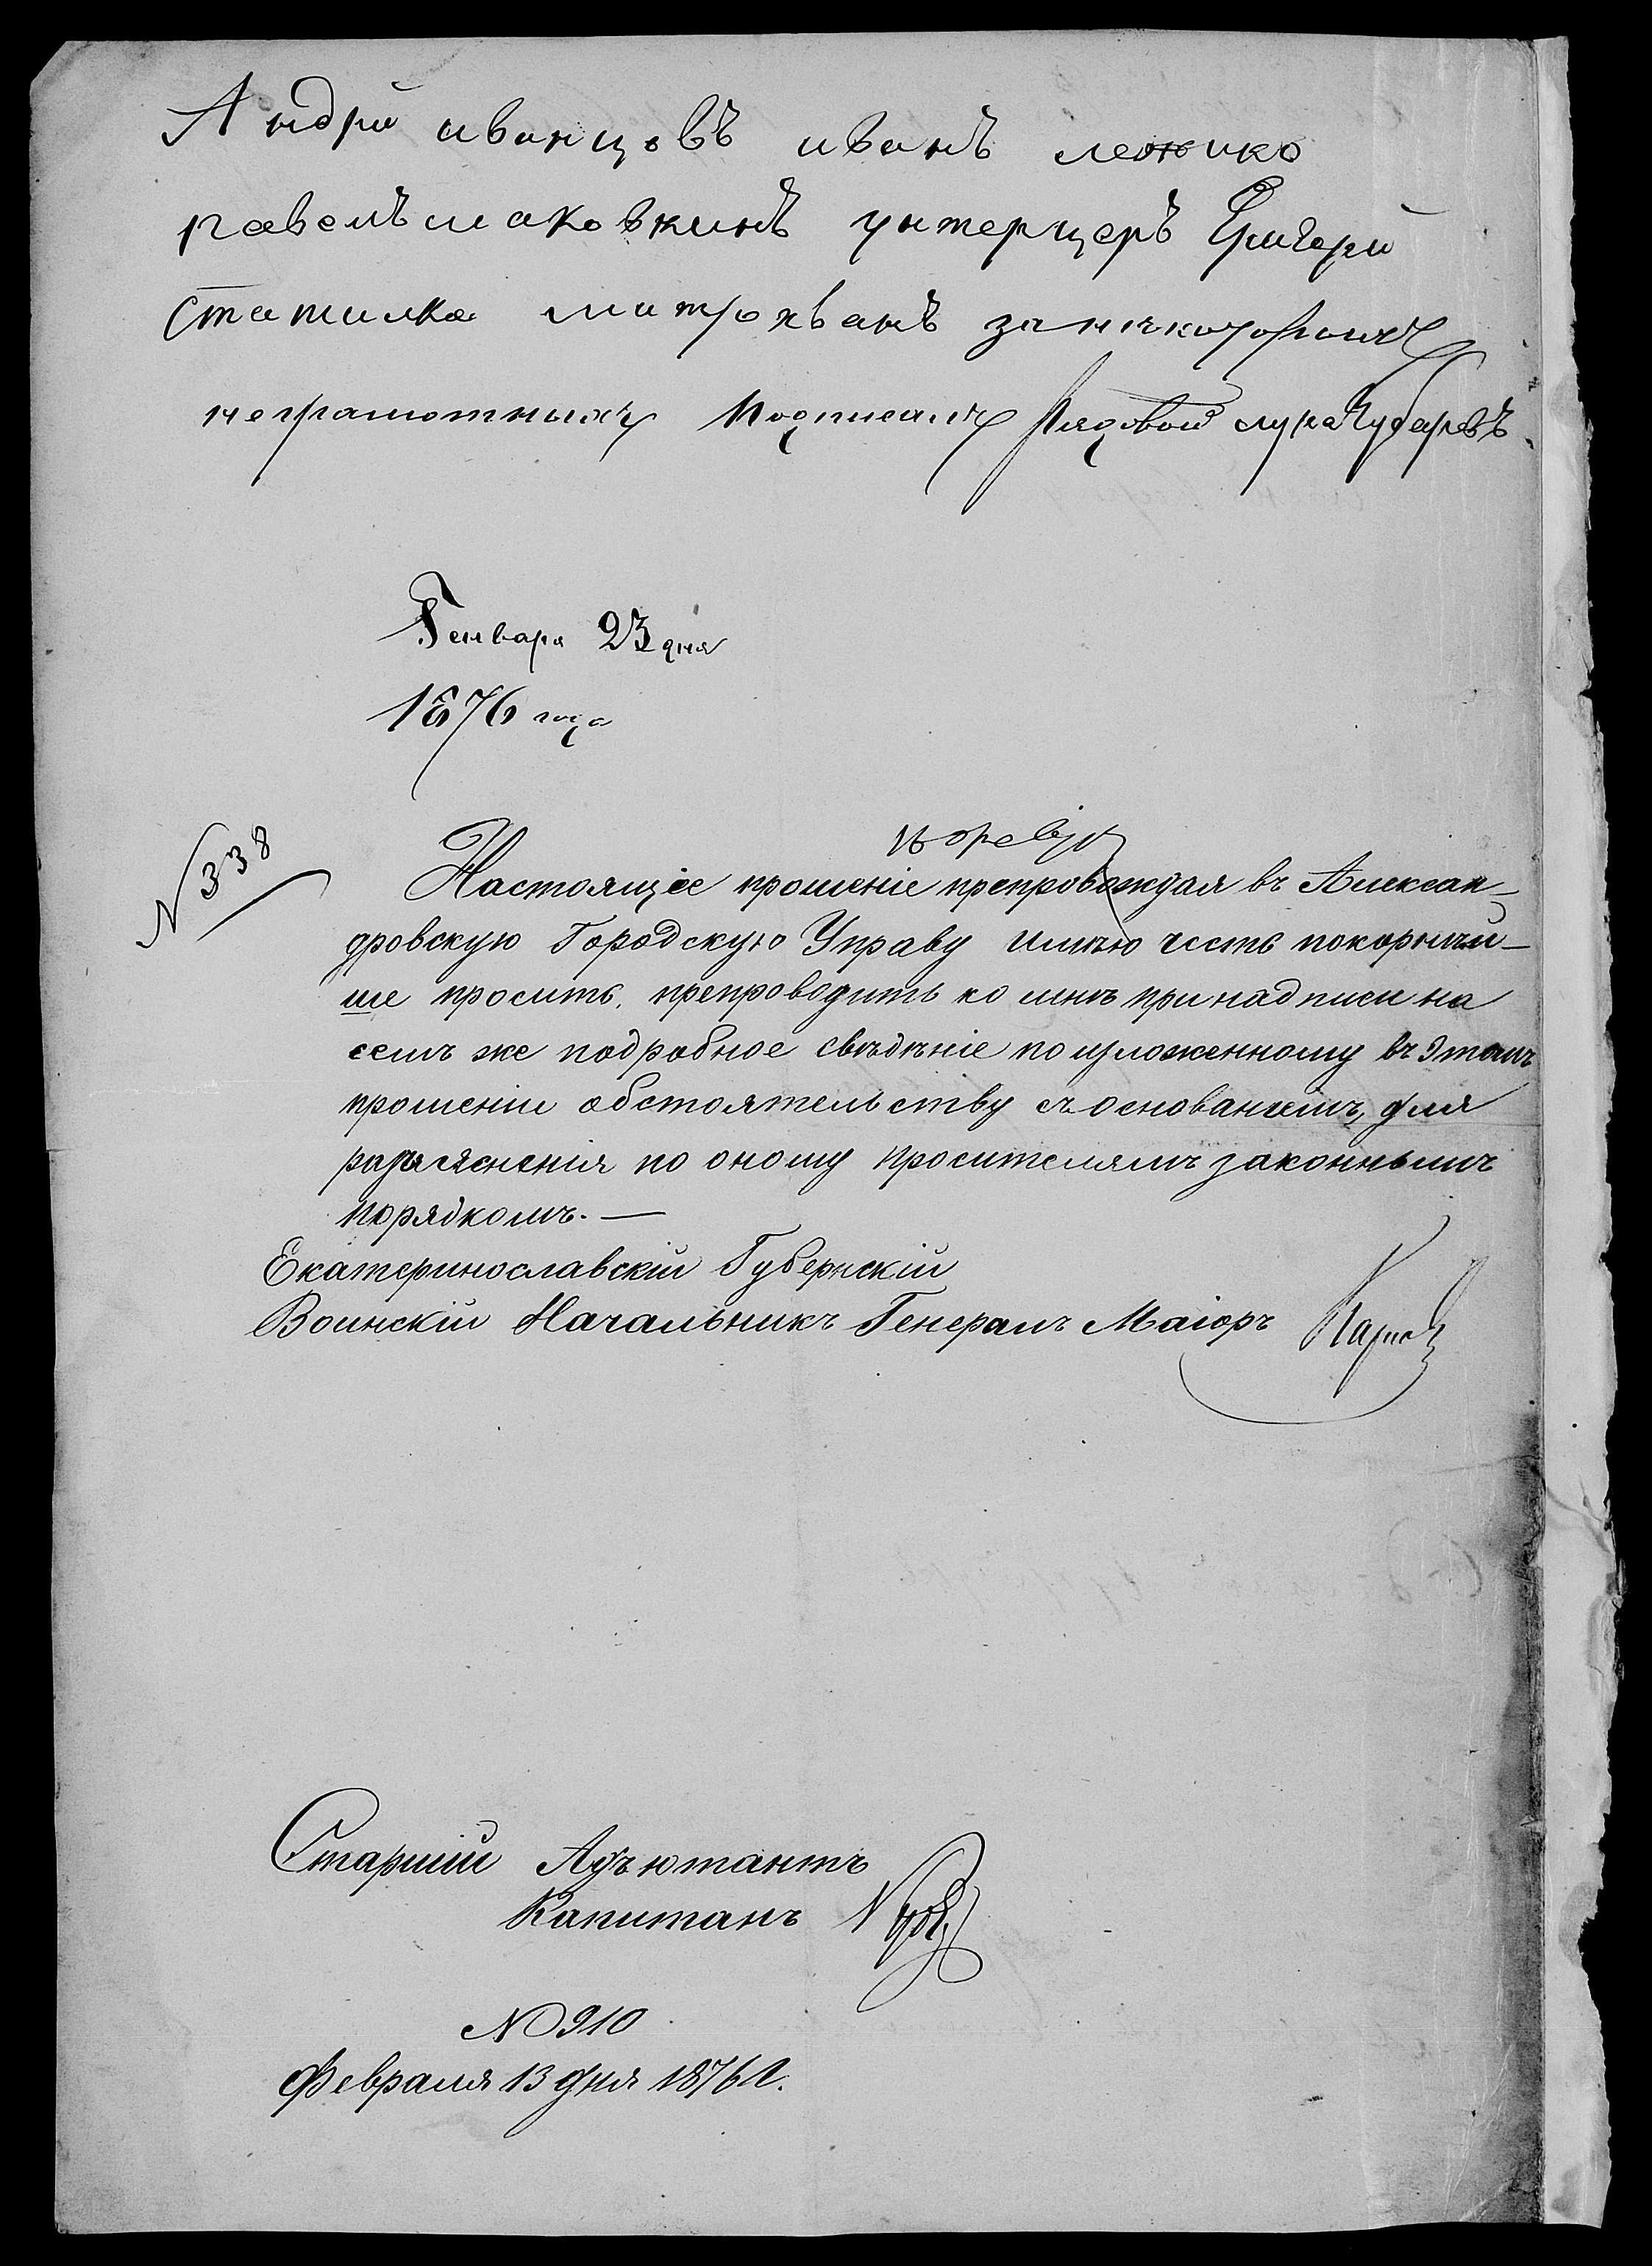 Андрй иванцовъ иванъ леонико
павелъ маковкинъ унтерцеръ Григорй
статилка митрохванъ за нѣкоторыхъ
неграмотныхъ Подписалъ Рядовой лука Чубаревъ
Генваря 23 дня
1876 года
N 338
Настоящее прошеніе препровождая въ Алексан-
дровскую Городскую Управу имѣю честь покорнѣй-
ше просить, препроводить ко мнѣ при надписи на
семъ же подробное свѣдѣніе по изложенному въ этомъ
прошеніи обстоятельству съ основаніемъ, для
разъясненія по оному просителямъ законнымъ
порядкомъ. —
Екатеринославскій Губернскій
Воинскій Начальникъ Генералъ Маіоръ
Старшій Адъютантъ
Капитанъ
N 910
Февраля 13 дня 1876 г.